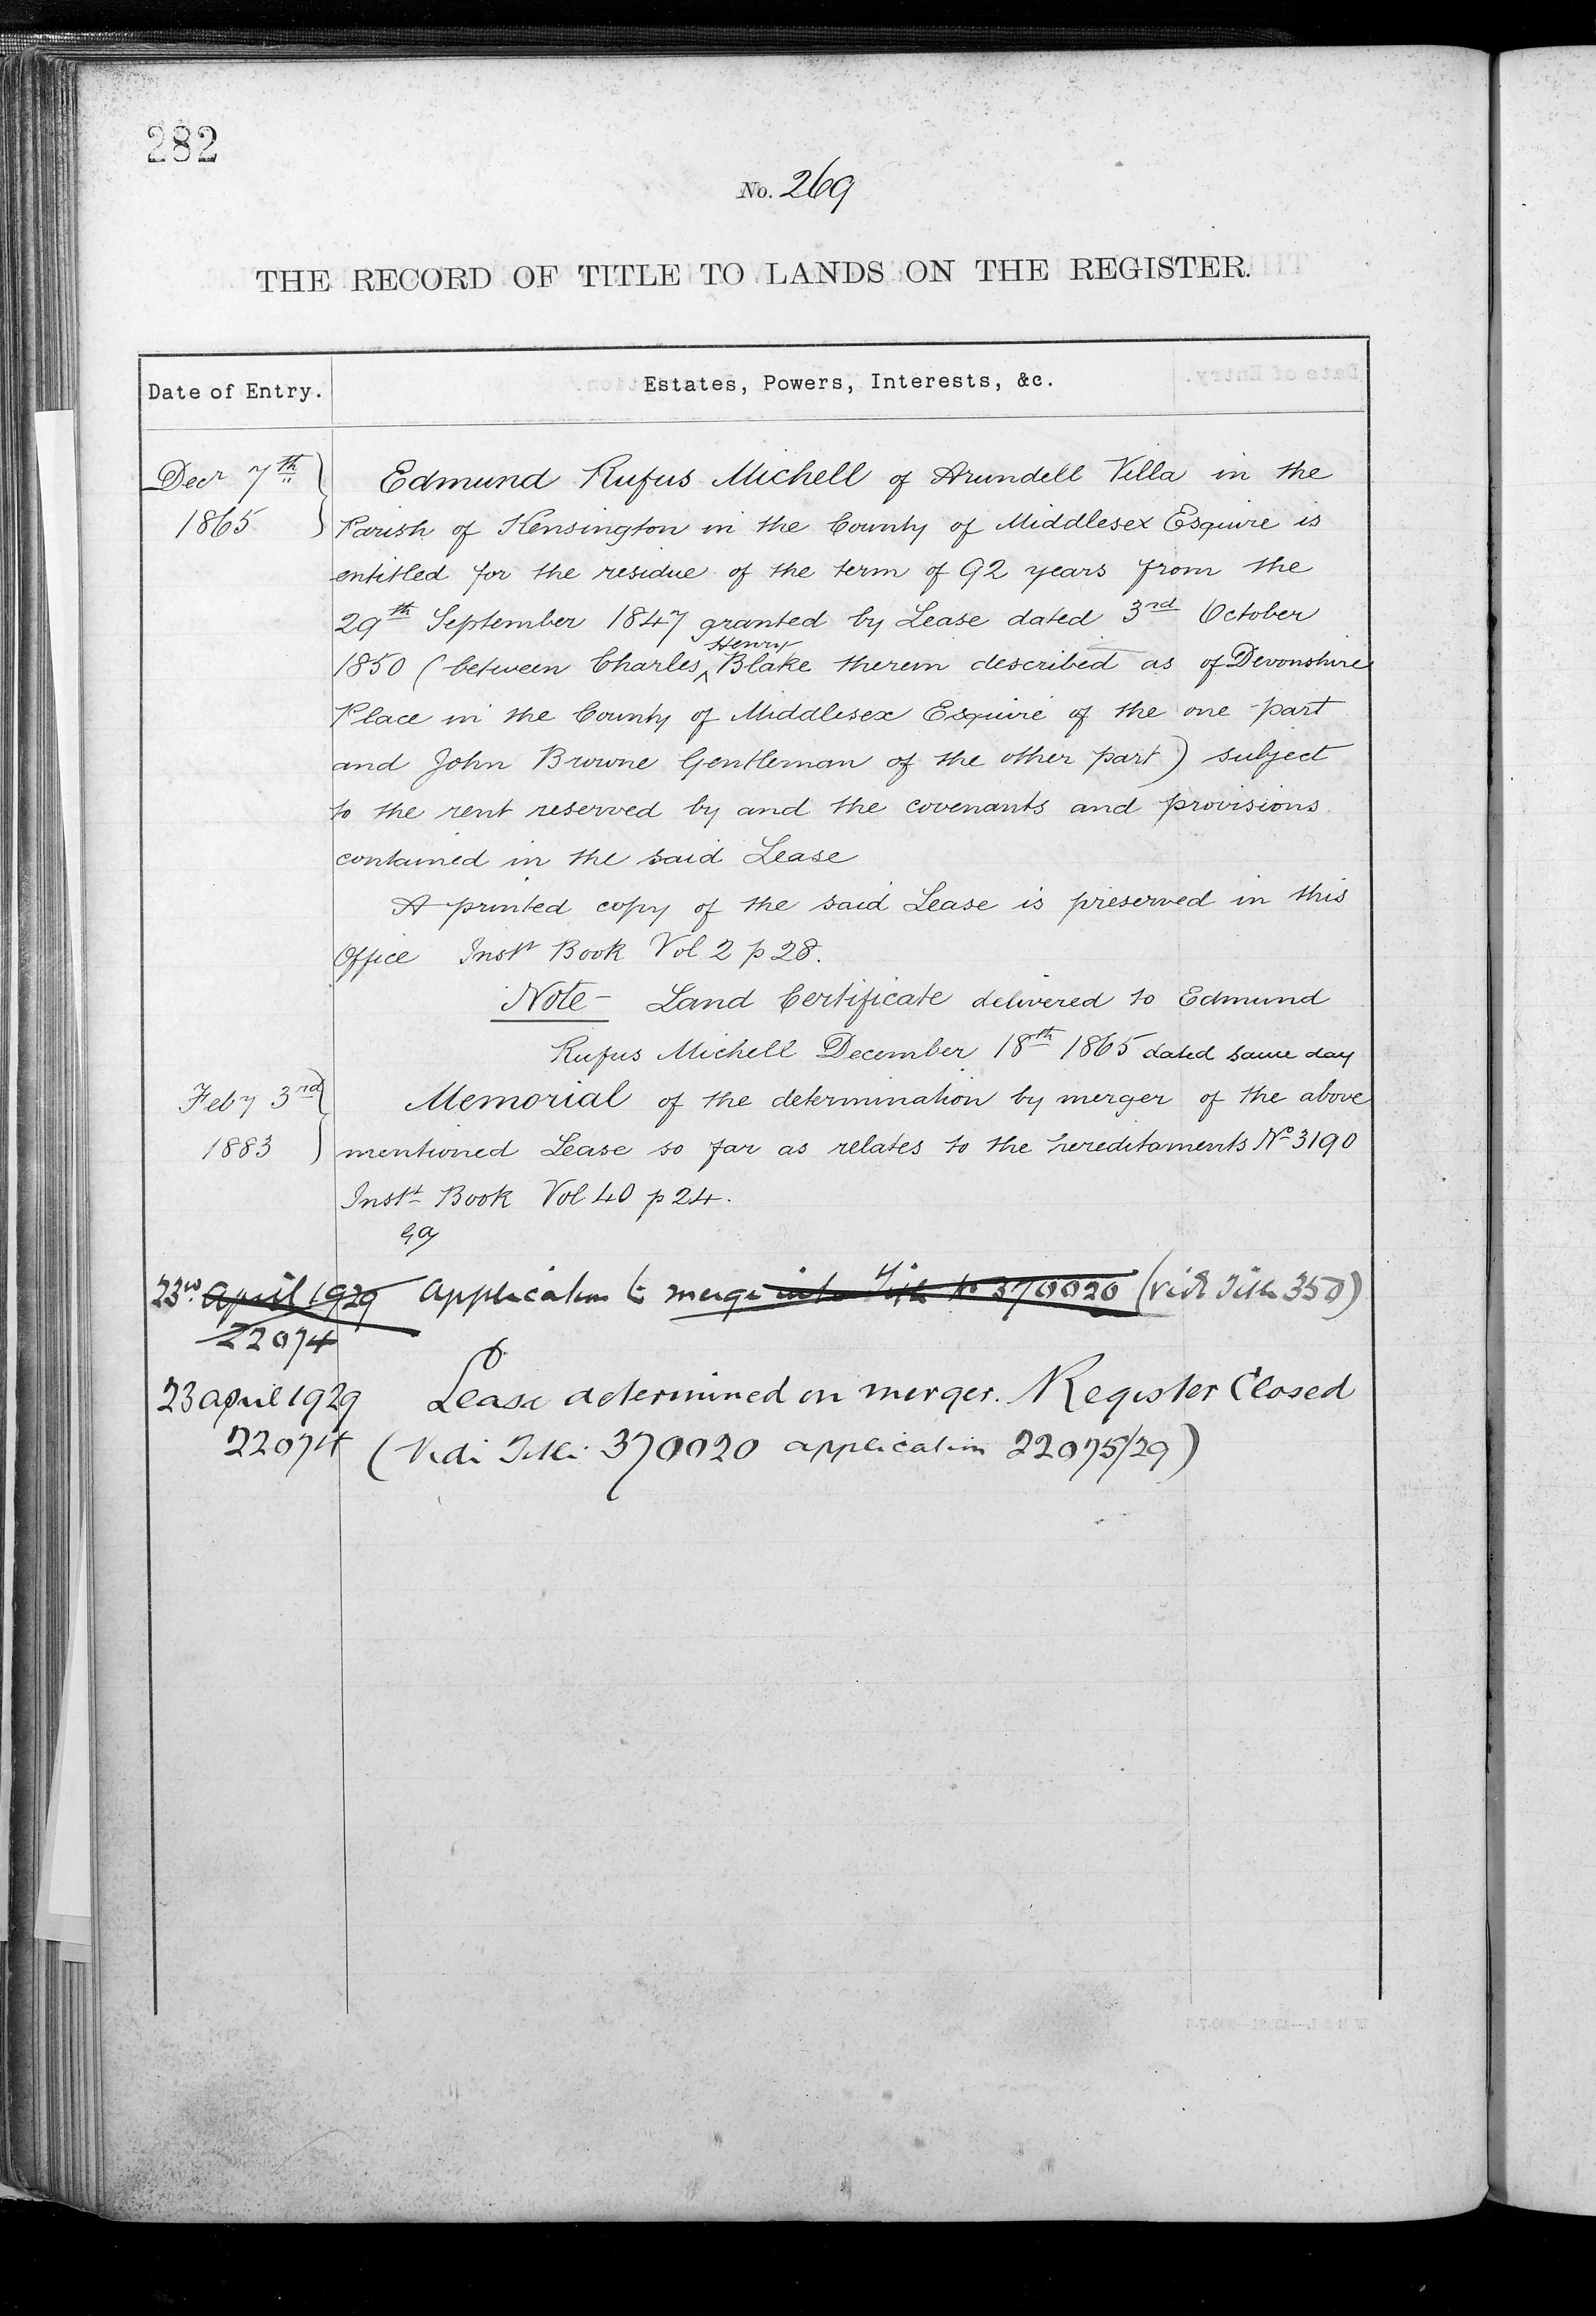 282
No. 269
THE RECORD OF TITLE TO LANDS ON THE REGISTER.
Date of Entry.
Estates, Powers, Interests, &c.
Decr 7th 1865
Edmund Rufus Michell of Arundell Villa in the
Parish of Kensington in the County of Middlesex Esquire is
entitled for the residue of the term of 92 years from the
29th September 1847 granted by Lease dated 3rd October
1850 (between Charles Henry Blake therein described as of Devonshire
Place in the County of Middlesex Esquire of the one part
and John Browne Gentleman of the other part) subject
to the rent reserved by and the covenants and provisions
contained in the said Lease
A printed copy of the said Lease is preserved in this
Office Instt Book Vol 2 p 28.
Note - Land Certificate delivered to Edmund
Rufus Michell December 18th 1865 dated same day
Feby 3rd 1883
Memorial of the determination by merger of the above
mentioned Lease so far as relates to the hereditaments No 3190
Instt Book Vol 40 p 24.
23rd April 1929 Application to merge into Title No 370020 (vide Title 350)
22074
23 april 1929 Lease determined on merger. Register Closed
22074 (Vide Title 370020 application 22075/29)